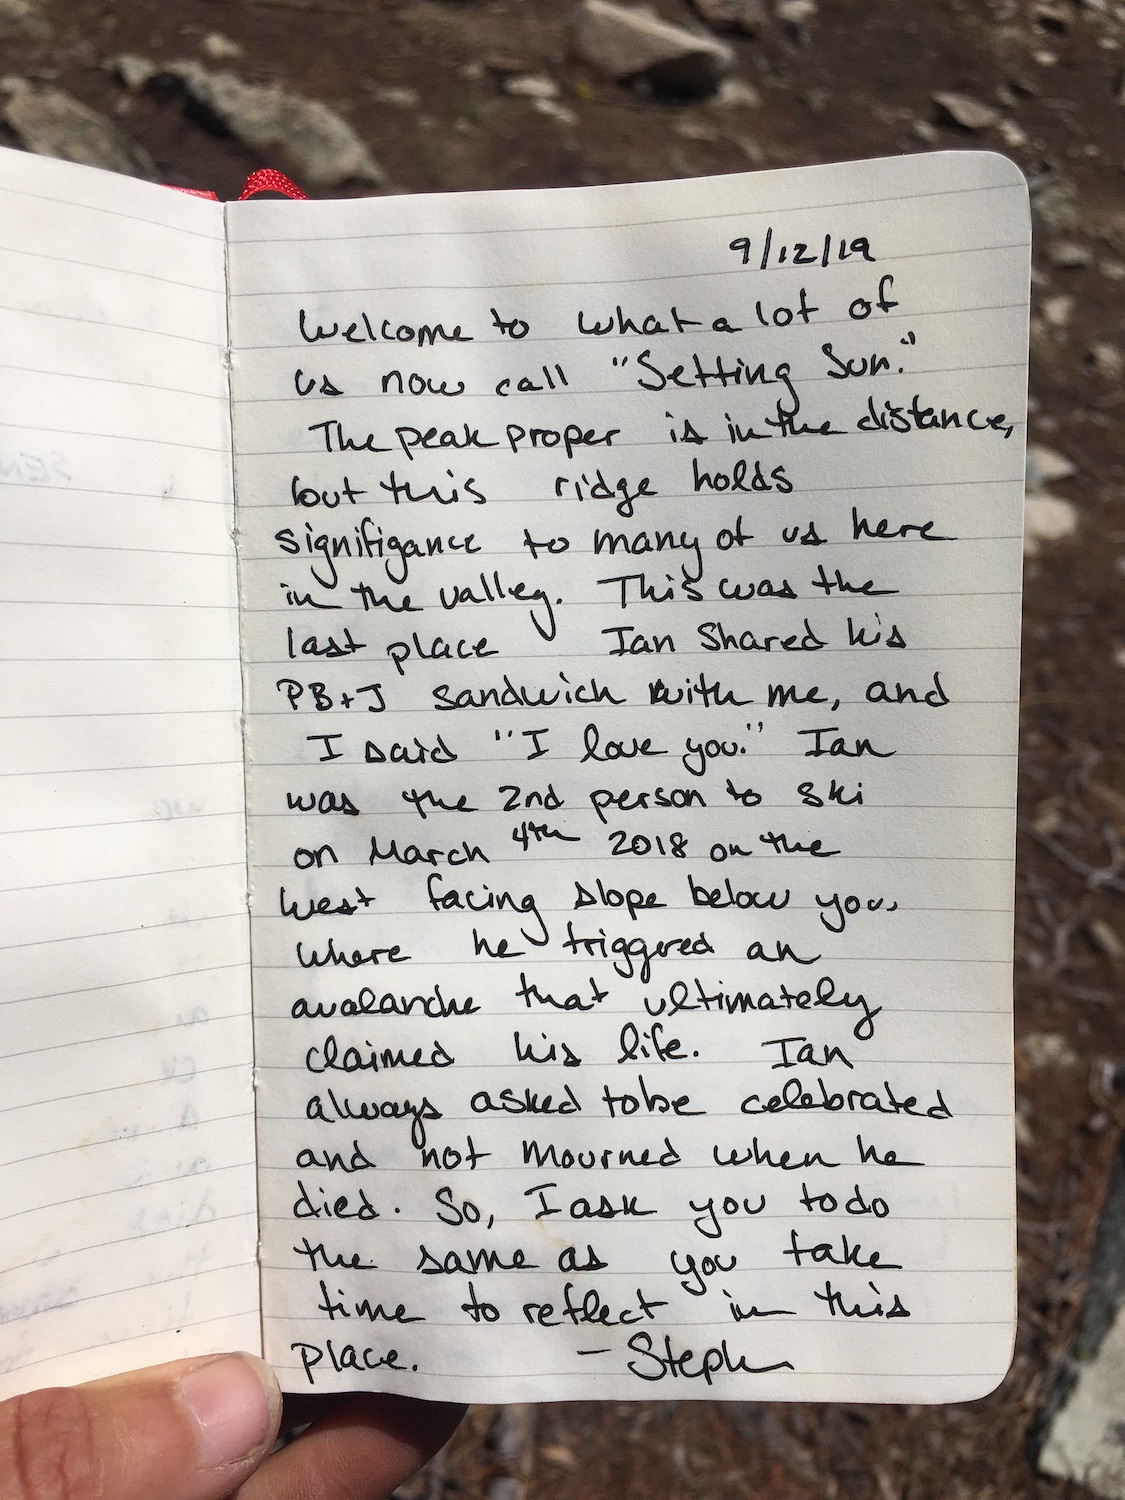 9/12/19
Welcome to what a lot of
us now call "Setting Sun."
The peak proper is in the distance,
but this ridge holds
signifigance to many of us here
in the valley. This was the
last place Ian Shared his
PB+J sandwich with me, and
I said "I love you." Ian
was the 2nd person to ski
on March 4th 2018 on the
west facing slope below you,
where he triggered an
avalanche that ultimately
claimed his life. Ian
always asked to be celebrated
and not mourned when he
died. So, I ask you to do
the same as you take
time to reflect in this
place. - Steph